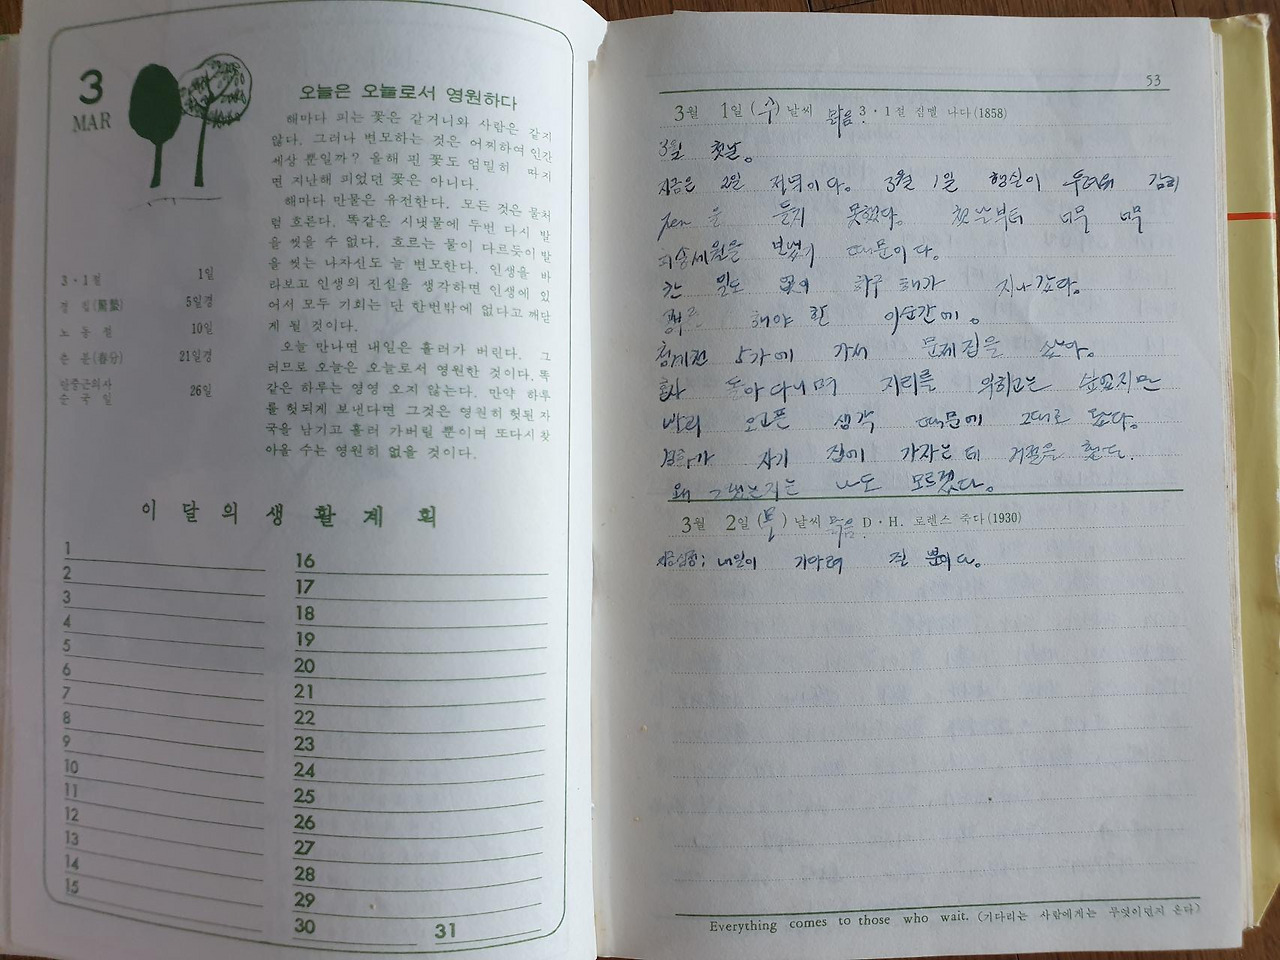 3
MAR
오늘은 오늘로서 영원하다
해마다 피는 꽃은 같거니와 사람은 같지
않다. 그러나 변모하는 것은 어찌하여 인간
세상 뿐일까? 올해 핀 꽃도 엄밀히 따지
면 지난해 피었던 꽃은 아니다.
해마다 만물은 유전한다. 모든 것은 물처
럼 흐른다. 똑같은 시냇물에 두번 다시 발
을 씻을 수 없다. 흐르는 물이 다르듯이 발
을 씻는 나자신도 늘 변모한다. 인생을 바
라보고 인생의 진실을 생각하면 인생에 있
어서 모두 기회는 단 한번밖에 없다고 깨닫
게 될 것이다.
오늘 만나면 내일은 흘러가 버린다. 그
러므로 오늘은 오늘로서 영원한 것이다. 똑
같은 하루는 영영 오지 않는다. 만약 하루
를 헛되게 보낸다면 그것은 영원히 헛된 자
국을 남기고 흘러 가버릴 뿐이며 또다시 찾
아올 수는 영원히 없을 것이다.
3·1절 1일
경 칩(驚蟄) 5일경
노 동 절 10일
춘 분(春分) 21일경
안중근의사
순 국 일 26일
이 달 의 생 활 계 획
1
2
3
4
5
6
7
8
9
10
11
12
13
14
15
16
17
18
19
20
21
22
23
24
25
26
27
28
29
30
31
53
3월 1일 (수) 날씨 맑음. 3·1절 짐멜 나다(1858)
3월 첫날.
지금은 2일 저녁이다. 3월 1일 행실이 두려워 감히
pen을 들지 못했다. 첫날부터 너무 너무
죄송세월을 보냈기 때문이다.
한 일도 없이 하루 해가 지나갔다.
공부 해야 할 이순간에.
청계천 5가에 가서 문제집을 샀다.
혼자 돌아다니며 지리를 익히고는 싶었지만
발리 오고픈 생각 때문에 그대로 왔다.
가 자기 집에 가자는데 거절을 했는데.
왜 그랬는지는 나도 모르겠다.
3월 2일 (목) 날씨 맑음. D·H. 로렌스 죽다(1930)
지금심정; 내일이 기다려 질 뿐이다.
Everything comes to those who wait. (기다리는 사람에게는 무엇이던지 온다)